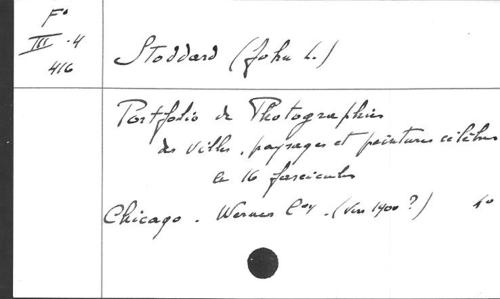 Fº
III.4
416
Stoddard (John L.)
Portfolio de Photographies
des villes, paysages et peintures célèbres
16 fascicules
Chicago. Werner Coy. (vers 1900 ?) 4º